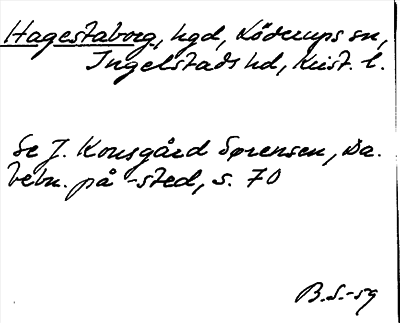 Hagestaborg, hgd, Löderups sn,
Ingelstads hd, Krist. l.
Se J. Kousgård Sørensen, Da.
bebn. på -sted, s. 70
B.S.-sg